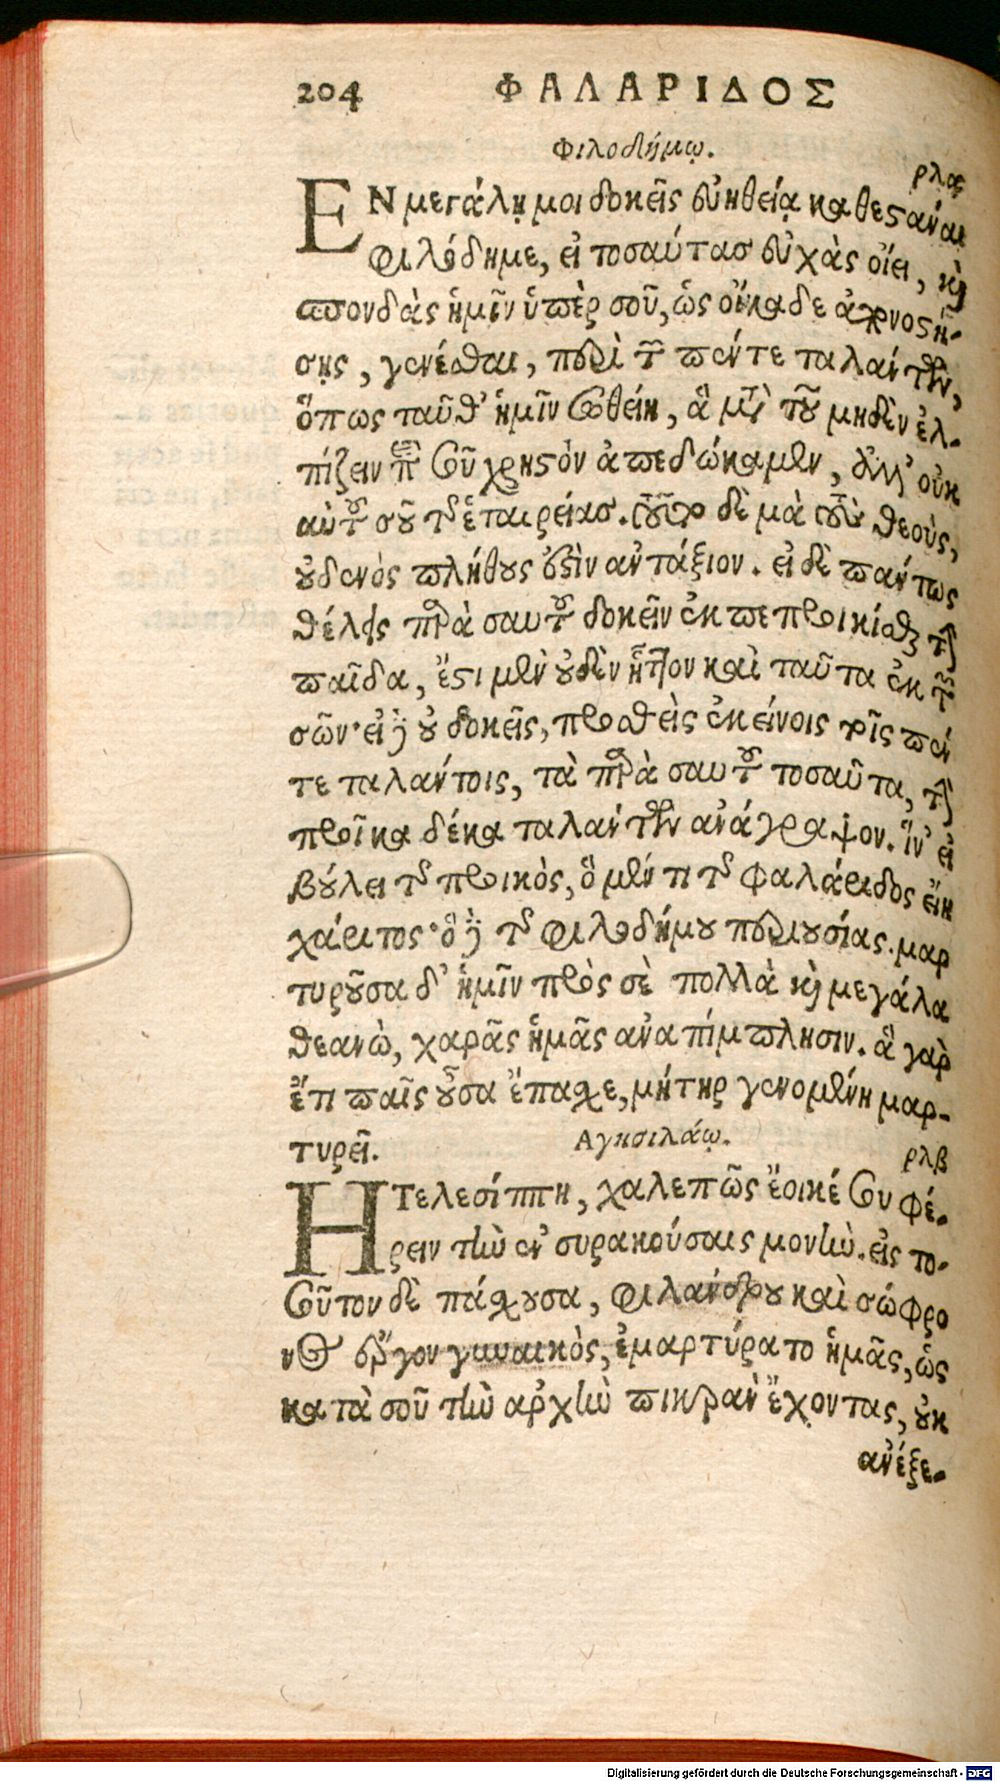 204 ΦΑΛΑΡΙΔΟΣ
Φιλοδήμῳ.
ρλα
ΕΝ μεγάλῃ μοι δοκεῖς εὐηθείᾳ καθεστάναι
φιλόδημε, εἰ τοσαύτας εὐχὰς οἴει, καὶ
σπονδὰς ἡμῖν ὑπὲρ σοῦ, ὡς οἴκαδε ἀφ
σῃς, γενέσθαι, περὶ τῶν πέντε ταλάντων,
ὅπως ταῦθ' ἡμῖν σωθείη, ἃ μετὰ τοῦ μηδὲν ἐλ-
πίζειν χρηστὸν ἀπεδώκαμεν, ἀλλ' οὐκ
αὐτοῦ σοῦ τῆς ἑταιρείας. δὲ μὰ τοὺς θεοὺς,
οὐδενὸς πλήθους ἐστὶν ἀντάξιον. εἰ δὲ πάντως
θέλεις παρὰ σαυτοῦ δοκεῖν ἐκπεπροικίσθαι τὴν
παῖδα, ἔστι μὲν οὐδὲν ἧττον καὶ ταῦτα ἐκ τῶν
σῶν· εἰ δὲ οὐ δοκεῖς, προσθεὶς ἐκείνοις τοῖς πέν
τε ταλάντοις, τὰ παρὰ σαυτοῦ τοσαῦτα, τὴν
προῖκα δέκα ταλάντων ἀνάγραψον. ἵν' εἰ
βούλει τῆς προικὸς, ὃ μέν τι τῆς φαλάριδος εἴη
χάριτος· ὃ δὲ τῆς φιλοδήμου περιουσίας. μαρ
τυροῦσα δ' ἡμῖν πρὸς σὲ πολλὰ καὶ μεγάλα
θεανὼ, χαρᾶς ἡμᾶς ἀναπίμπλησιν. ἃ γὰρ
ἔτι παῖς οὖσα ἔπασχε, μήτηρ γενομένη μαρ-
τυρεῖ.
Αγησιλάῳ.
ρλβ
Η Τελεσίππη, χαλεπῶς ἔοικέ σου φέ-
ρειν τὴν ἐν συρακούσαις μονὴν. εἰς το-
σοῦτον δὲ πάσχουσα, φιλάνδρου καὶ σώφρο
νος ἔργον γυναικὸς, ἐμαρτύρατο ἡμᾶς, ὡς
κατὰ σοῦ τὴν ἀρχὴν πικρὰν ἔχοντας, οὐκ
ἀνέξε-
Digitalisierung gefördert durch die Deutsche Forschungsgemeinschaft - DFG